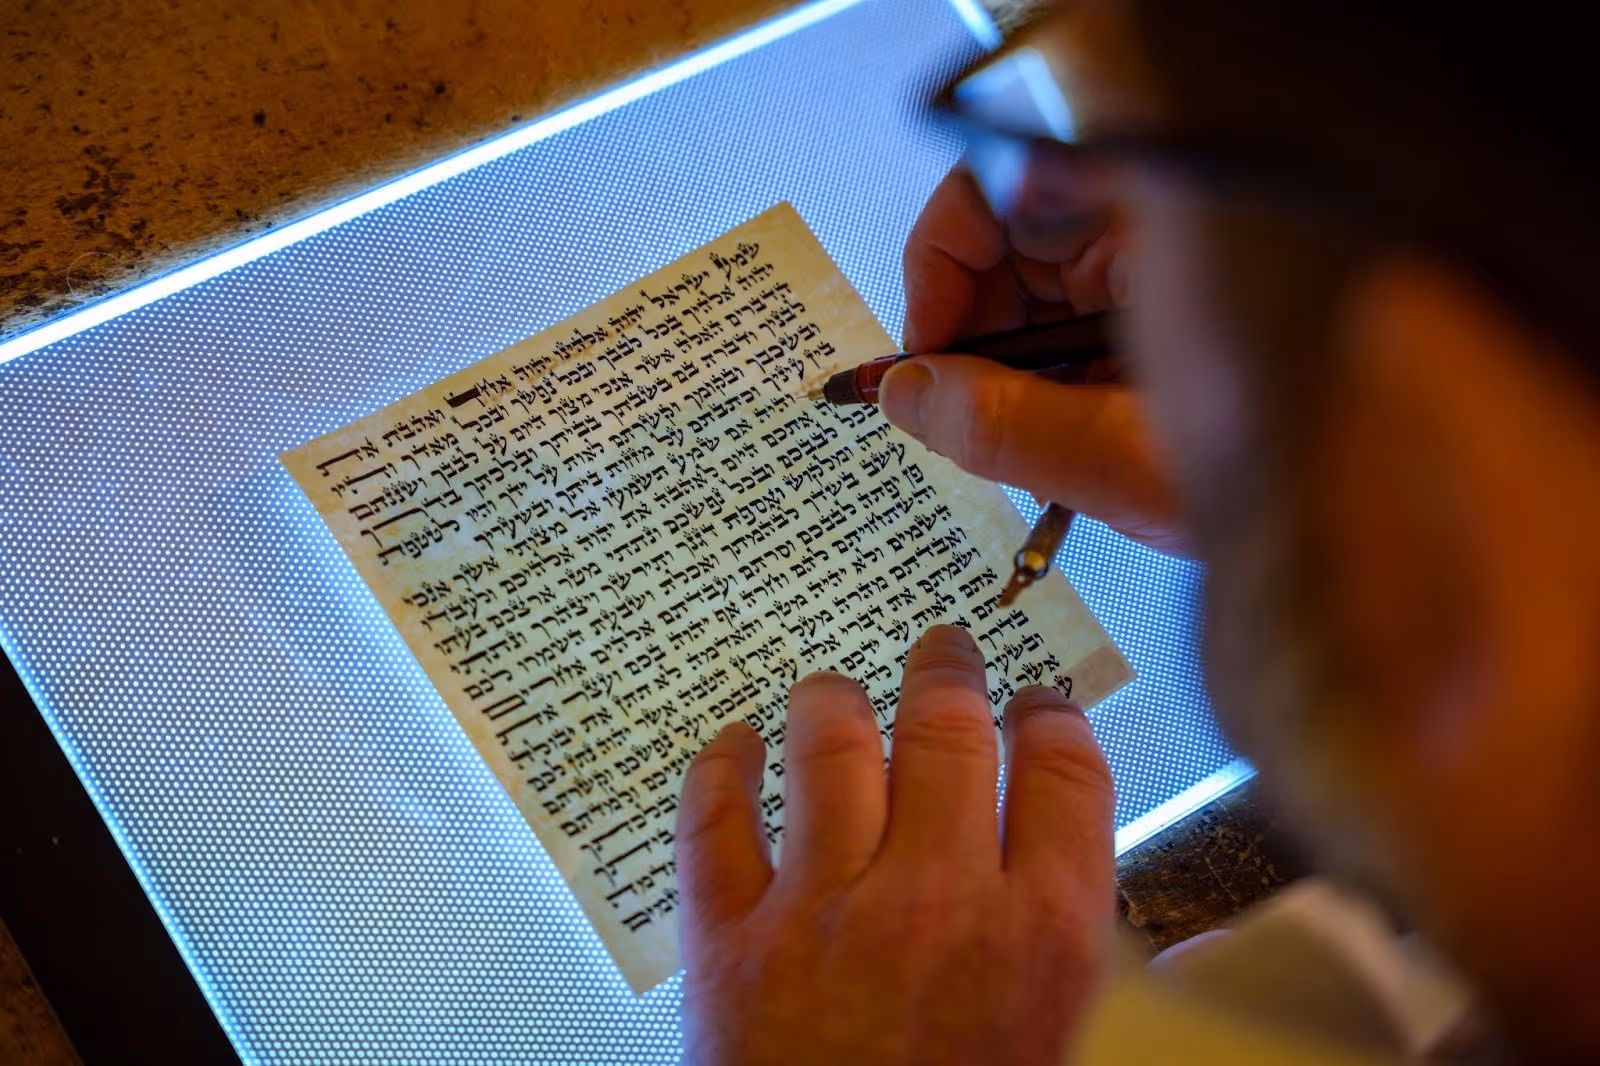 שמע ישראל יהוה אלהינו יהוה אחד ואהבת את
יהוה אלהיך בכל לבבך ובכל נפשך ובכל מאדך והיו
הדברים האלה אשר אנכי מצוך היום על לבבך ושננתם
לבניך ודברת בם בשבתך בביתך ובלכתך בדרך
ובשכבך ובקומך וקשרתם לאות על ידך והיו לטטפת
בין עיניך וכתבתם על מזזות ביתך ובשעריך
והיה אם שמע תשמעו אל מצותי אשר אנכי
אתכם היום לאהבה את יהוה אלהיכם ולעבדו
בכל לבבכם ובכל נפשכם ונתתי מטר ארצכם בעתו
יורה ומלקוש ואספת דגנך ותירשך ויצהרך ונתתי
עשב בשדך לבהמתך ואכלת ושבעת השמרו לכם
פן יפתה לבבכם וסרתם ועבדתם אלהים אחרים
והשתחויתם להם וחרה אף יהוה בכם ועצר את
השמים ולא יהיה מטר והאדמה לא תתן את יבולה
ואבדתם מהרה מעל הארץ הטבה אשר יהוה נתן לכם
ושמתם את דברי אלה על לבבכם ועל נפשכם וקשרתם
אתם לאות על ידכם עיניכם ולמדתם
אתם
בדרך
ובשעריך
אשר
על